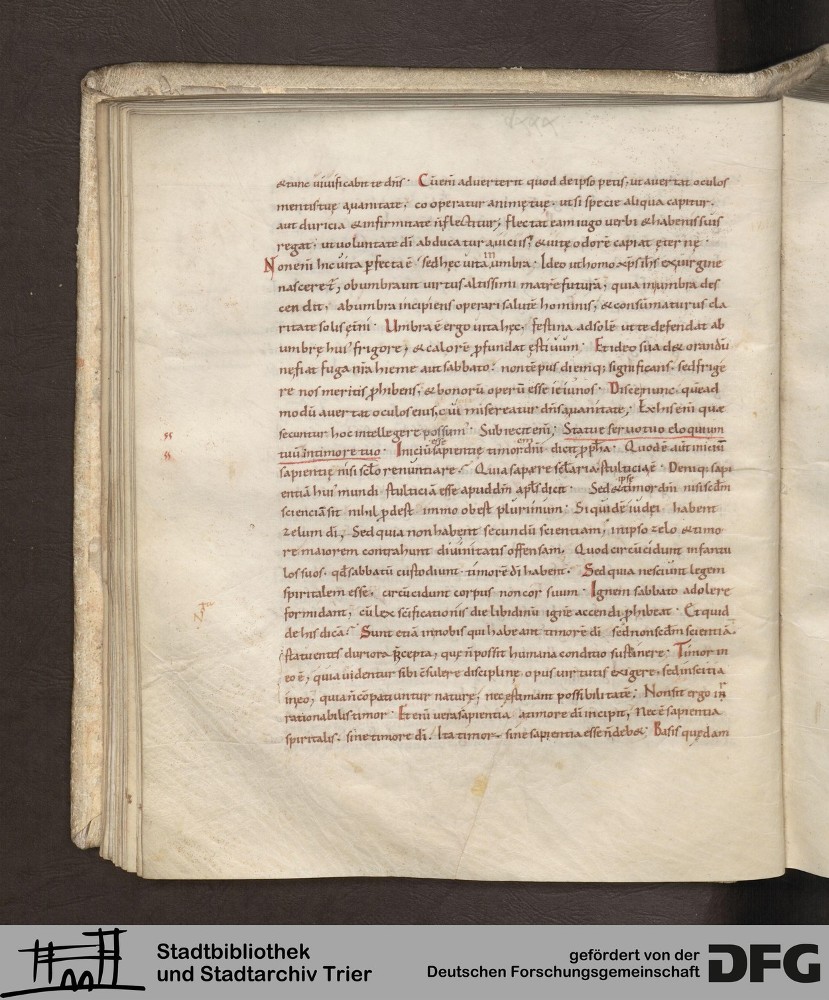 &tunc uiuificabit te dns· Cū eni adverterit quod de ipso petis, ut auertat oculos
mentis tuę auanitate· cooperatur animę tuę· ut si specie aliqua capitur·
aut duricia & infirmitate n̄ flectitur; flectat eam iugo uerbi & habenis suis
regat· ut uoluntate dī abducatur auiciis, & uitę odorē capiat ęternę·
Non eni hic uita pfecta ē· sed hęc uita in umbra· Ideo ut homo xps ihs ex uirgine
nasceret̄, obumbrauit uirtus altissimi matre futurā, quia in umbra des
cendit, ab umbra incipiens operari salutē hominis, & consūmaturus cla
ritate solis ęt̄ni· Umbra ē ergo uita hęc, festina ad solē ut te defendat ab
umbrę hui' frigore, & calorē pfundat ęstiuum· Et ideo s̄
ne fiat fuga nr̄a hieme aut sabbato· non tēpus diem q; significans· sed frige
re nos meritis phibens, & bonorū operū esse ieiunos· Disce nunc quead
modū auertat oculos eius, cui misereatur dns auanitate; Ex his eni quæ
secuntur hoc intellegere possum'· Subiecit eni; Statue seruo tuo eloquium
tuū in timore tuo· Iniciū sapientię esse timorē dni dicit ppha· Quod ē aut initiū
sapientię nisi sclo renuntiare· Quia sapere sclaria stulticia ē· Deniq; sapi
entiā hui' mundi stulticiā esse apud dm̄ apls dicit· Sed & ipse timor dni nisi scdm
scienciā sit nihil pdest immo obest plurimum· Siquidē iudei habent
zelum dī, Sed quia non habent secundū scientiam, in ipso zelo & timo
re maiorem contrahunt diuinitatis offensam, Quod circūcidunt infantu
los suos, qd sabbatū custodiunt· timorē dī habent· Sed quia nesciunt legem
spiritalem esse, circūcidunt corpus non cor suum· Ignem sabbato adolere
formidant, cū lex scificationis die libidinū ignē accendi phibeat· Et quid
de his dicā· Sunt etiā in nobis qui habeant timorē dī sed non scdm scientiā·
statuentes duriora p̄cepta, quę n̄ possit humana conditio sustinere· Timor in
eo ē, quia uidentur sibi c̄sulere disciplinę, opus uirtutis exigere, sed inscitia
in eo, quia n̄ cōpatiuntur naturę, nec ęstimant possibilitatē· Non sit ergo
rationabilis timor· Et eni uera sapientia a timore dī incipit, Nec ē sapientia
spiritalis· sine timore dī· Ita timor sine sapientia esse n̄ deb&; Basis quędam
Stadtbibliothek
und Stadtarchiv Trier
gefördert von der
Deutschen Forschungsgemeinschaft
DFG